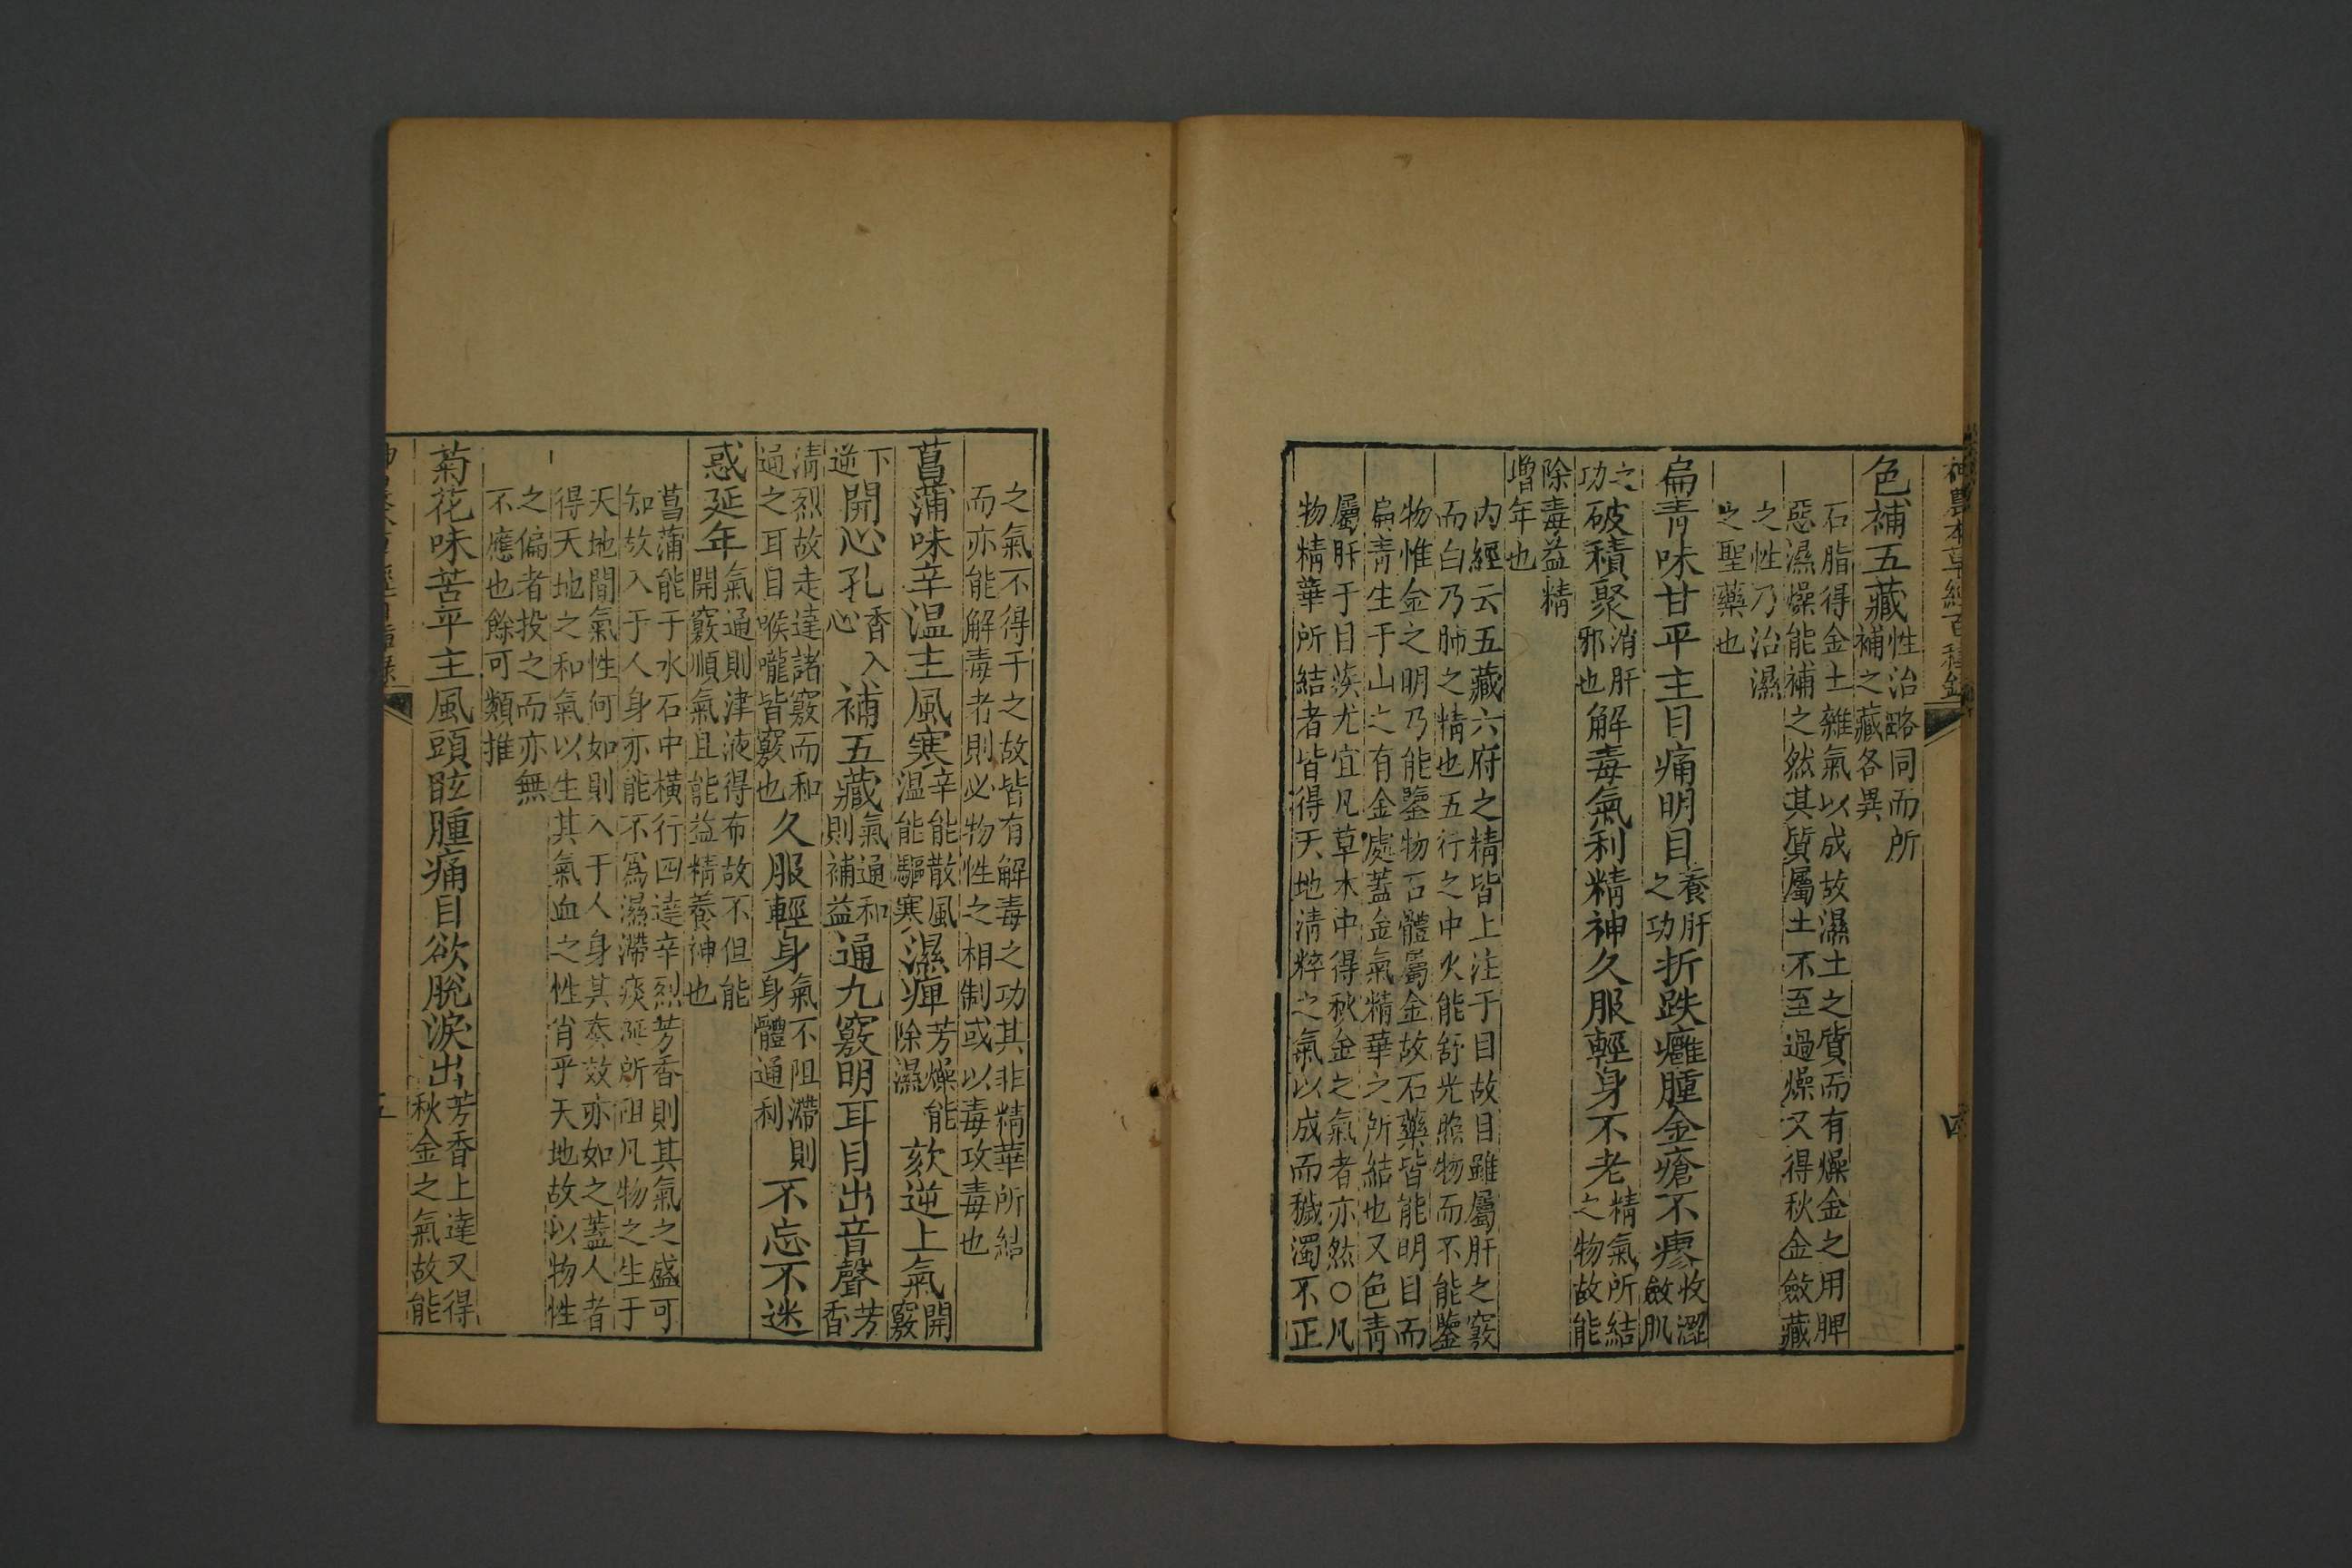 神農本草經百種錄
四
色補五藏性治略同而所補之藏各異
石脂得金土雜氣以成故濕土之質而有燥金之用脾
惡濕燥能補之然其質屬土不至過燥又得秋金斂藏
之性乃治濕
之聖藥也
扁青味甘平主目痛明目養肝之功折跌癰腫金瘡不瘳收澀斂肌
之功破積聚消肝邪也解毒氣利精神久服輕身不老精氣所結之物故能
除毒益精增年也
內經云五藏六府之精皆上注于目故目雖屬肝之竅
而白乃肺之精也五行之中火能舒光照物而不能鑒
物惟金之明乃能鑒物石體屬金故石藥皆能明目而
扁青生于山之有金處蓋金氣精華之所結也又色青
屬肝于目疾尤宜凡草木中得秋金之氣者亦然○凡
物精華所結者皆得天地清粹之氣以成而穢濁不正
之氣不得干之故皆有解毒之功其非精華所結
而亦能解毒者則必物性之相制或以毒攻毒也
菖蒲味辛溫主風寒辛能散風溫能驅寒濕痺芳燥能除濕欬逆上氣開竅
下逆開心孔香入心補五藏氣通和則補益通九竅明耳目出音聲芳香
清烈故走達諸竅而和通之耳目喉嚨皆竅也久服輕身氣不阻滯則身體通利不忘不迷
惑延年氣通則津液得布故不但能開竅順氣且能益精養神也
菖蒲能于水石中橫行四達辛烈芳香則其氣之盛可
知故入于人身亦能不為濕滯痰涎所阻凡物之生于
天地間氣性何如則入于人身其奏效亦如之蓋人者
得天地之和氣以生其氣血之性肖乎天地故以物性
之偏者投之而亦無
不應也餘可類推
菊花味苦平主風頭眩腫痛目欲脫淚出芳香上達又得秋金之氣故能
五